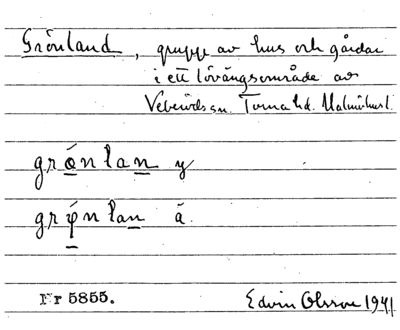 Grönland, grupp av hus och gårdar
i ett lövängsområde av
Veberöds sn. Torna hd. Malmöhus l.
grǿnlan y
grǿnlan ä.
Nr 5855.
Edvin Olsson 1941